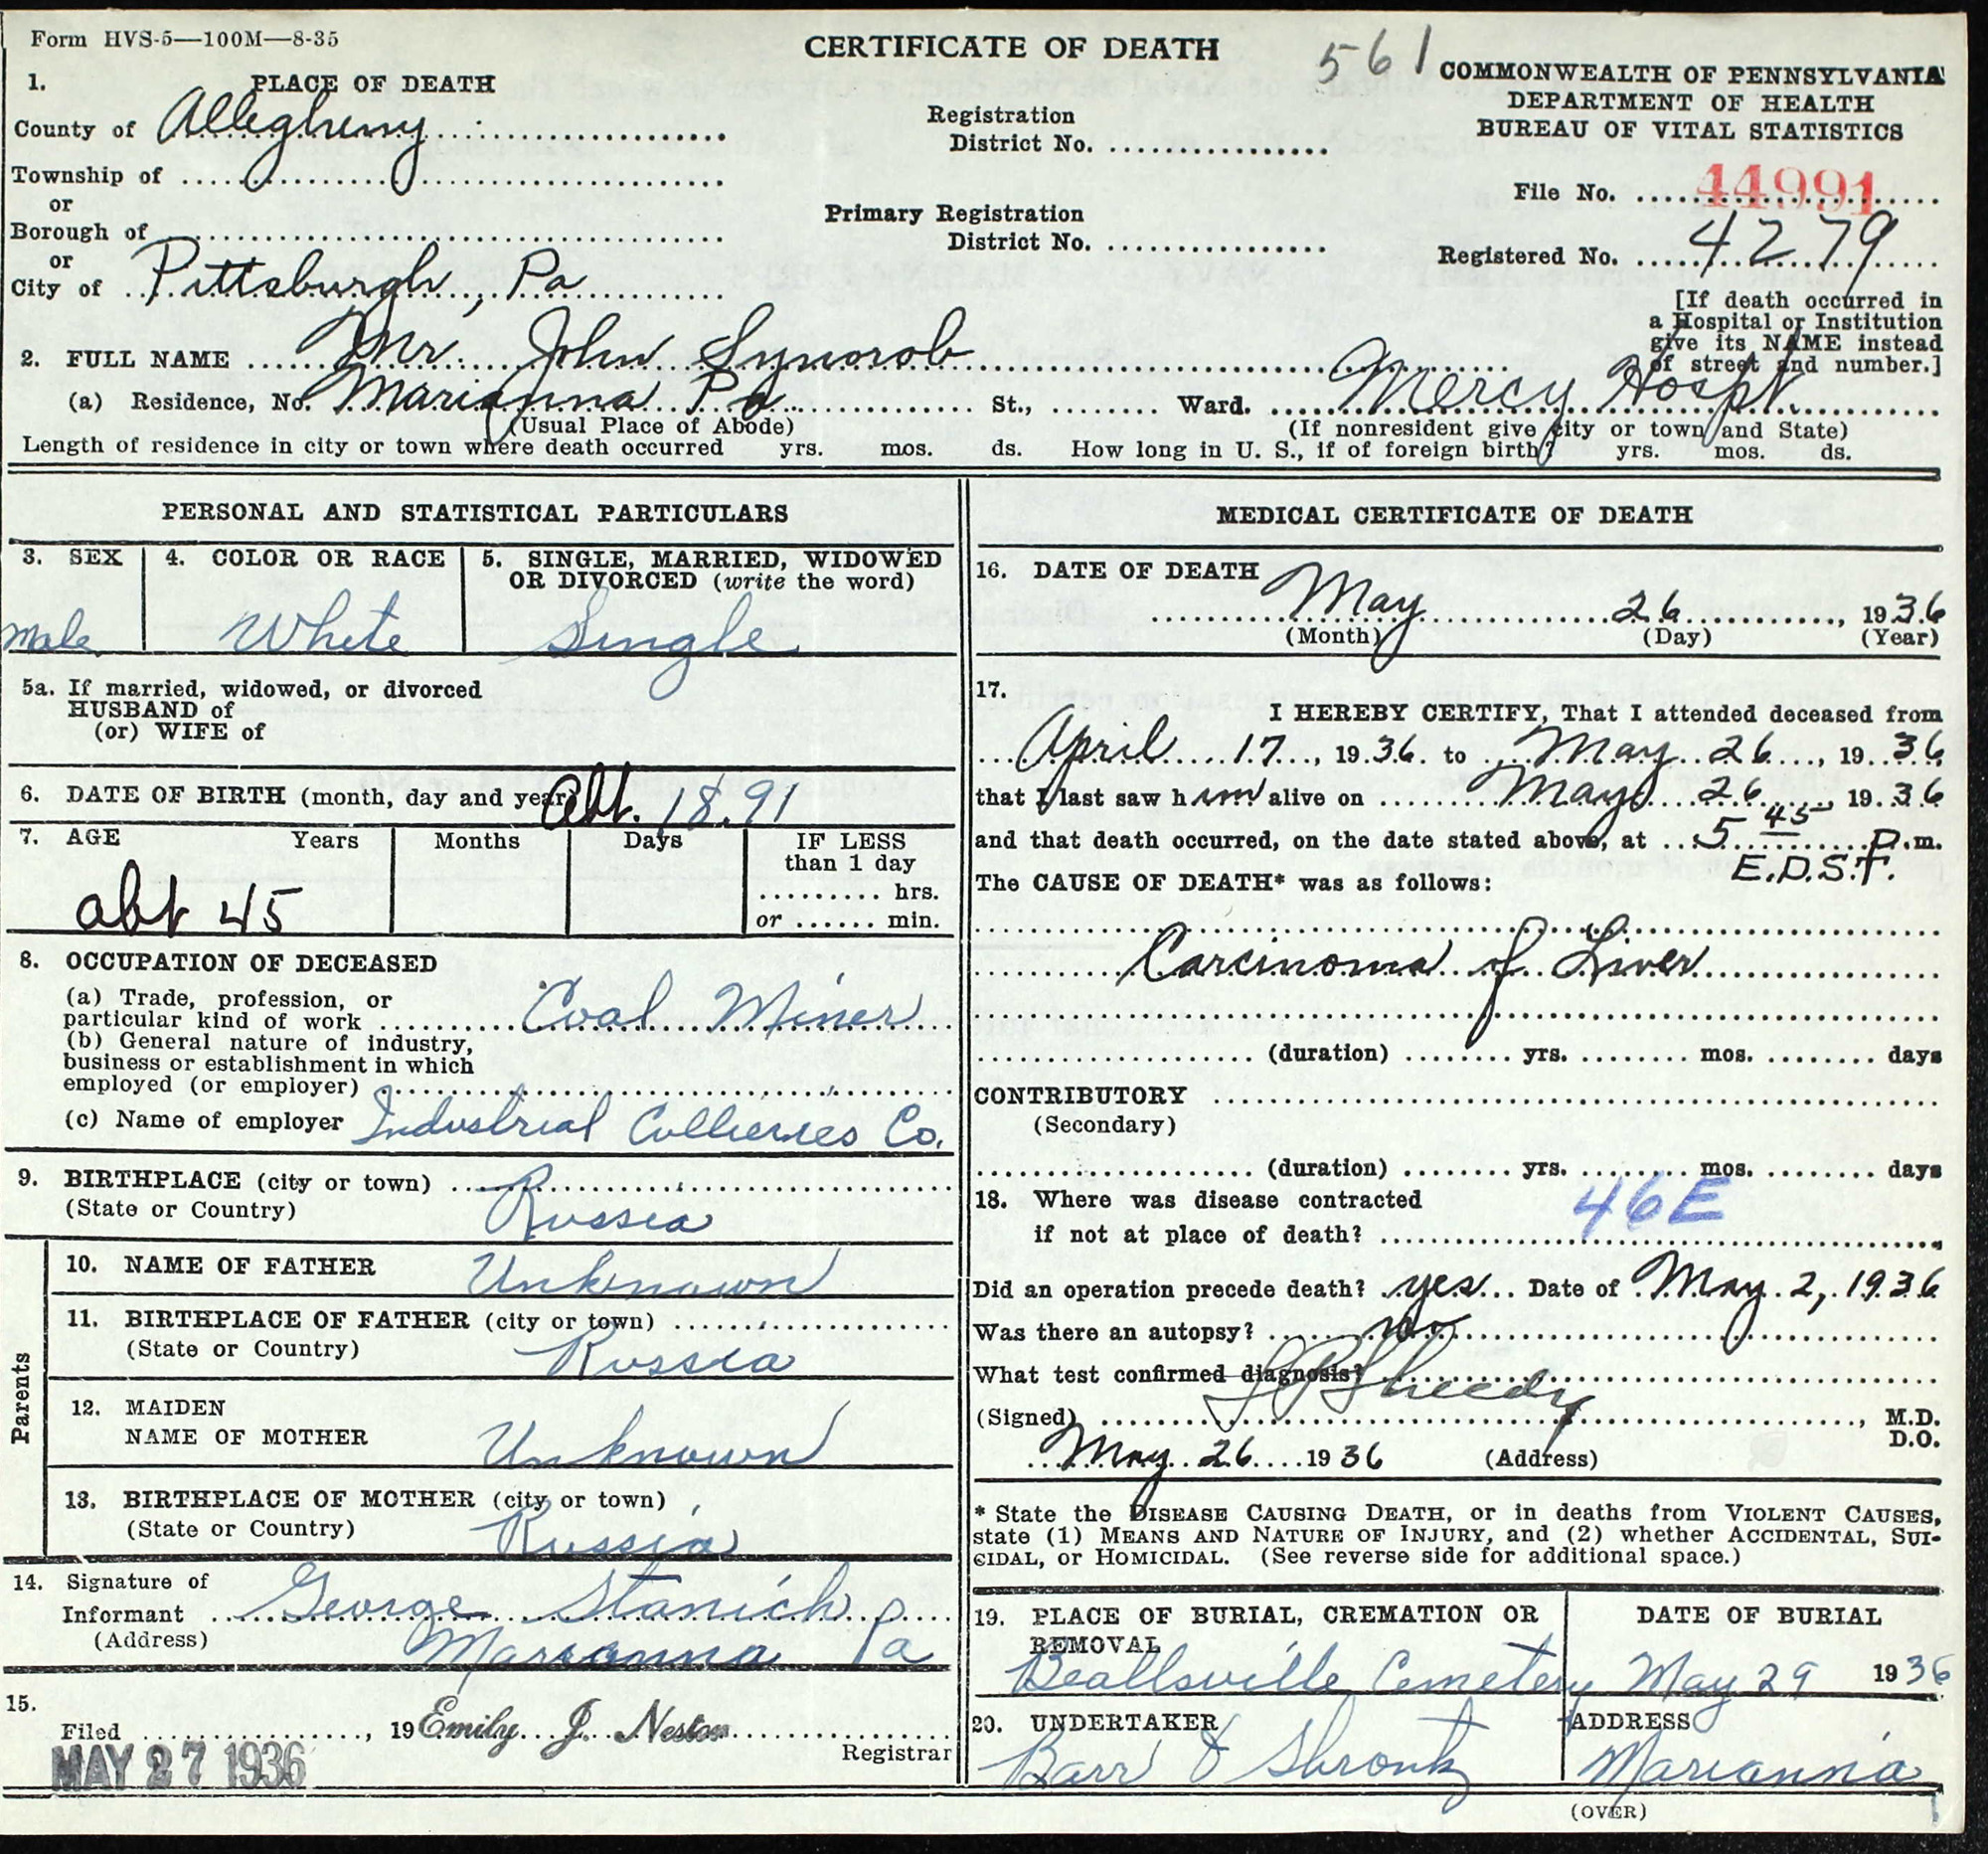 Form HVS-5—100M—8-35
CERTIFICATE OF DEATH
561
COMMONWEALTH OF PENNSYLVANIA
DEPARTMENT OF HEALTH
BUREAU OF VITAL STATISTICS
1. PLACE OF DEATH
County of Allegheny
Registration
District No.
Township of
File No. 44991
or
Borough of
Primary Registration
District No.
Registered No. 4279
or
City of Pittsburgh, Pa
[If death occurred in
a Hospital or Institution
give its NAME instead
of street and number.]
2. FULL NAME Mr. John Synorob
(a) Residence, No. Marianna Pa St., Ward. Mercy Hospt.
(Usual Place of Abode)
(If nonresident give city or town and State)
Length of residence in city or town where death occurred yrs. mos. ds. How long in U. S., if of foreign birth? yrs. mos. ds.
PERSONAL AND STATISTICAL PARTICULARS
3. SEX
Male
4. COLOR OR RACE
White
5. SINGLE, MARRIED, WIDOWED
OR DIVORCED (write the word)
Single
5a. If married, widowed, or divorced
HUSBAND of
(or) WIFE of
6. DATE OF BIRTH (month, day and year) Abt. 1891
7. AGE Years Months Days IF LESS
than 1 day
hrs.
or min.
abt 45
8. OCCUPATION OF DECEASED
(a) Trade, profession, or
particular kind of work Coal Miner
(b) General nature of industry,
business or establishment in which
employed (or employer)
(c) Name of employer Industrial Collieries Co.
9. BIRTHPLACE (city or town)
(State or Country) Russia
Parents
10. NAME OF FATHER Unknown
11. BIRTHPLACE OF FATHER (city or town)
(State or Country) Russia
12. MAIDEN
NAME OF MOTHER Unknown
13. BIRTHPLACE OF MOTHER (city or town)
(State or Country) Russia
14. Signature of
Informant George Stanich
(Address) Marianna Pa
15.
Filed , 19 Emily J. Nestor
Registrar
MAY 27 1936
MEDICAL CERTIFICATE OF DEATH
16. DATE OF DEATH
May 26, 1936
(Month) (Day) (Year)
17.
I HEREBY CERTIFY, That I attended deceased from
April 17, 1936 to May 26, 1936
that I last saw him alive on May 26, 1936
and that death occurred, on the date stated above, at 5 45 P.m.
E.D.S.T.
The CAUSE OF DEATH* was as follows:
Carcinoma of Liver
(duration) yrs. mos. days
CONTRIBUTORY
(Secondary)
(duration) yrs. mos. days
18. Where was disease contracted
46E
if not at place of death?
Did an operation precede death? yes Date of May 2, 1936
Was there an autopsy? no
What test confirmed diagnosis?
(Signed) Sheedy, M.D.
D.O.
May 26 1936 (Address)
* State the DISEASE CAUSING DEATH, or in deaths from VIOLENT CAUSES,
state (1) MEANS AND NATURE OF INJURY, and (2) whether ACCIDENTAL, SUI-
CIDAL, or HOMICIDAL. (See reverse side for additional space.)
19. PLACE OF BURIAL, CREMATION OR
REMOVAL
Beallsville Cemetery
DATE OF BURIAL
May 29 1936
20. UNDERTAKER
Barr & Shrontz
ADDRESS
Marianna
(OVER)